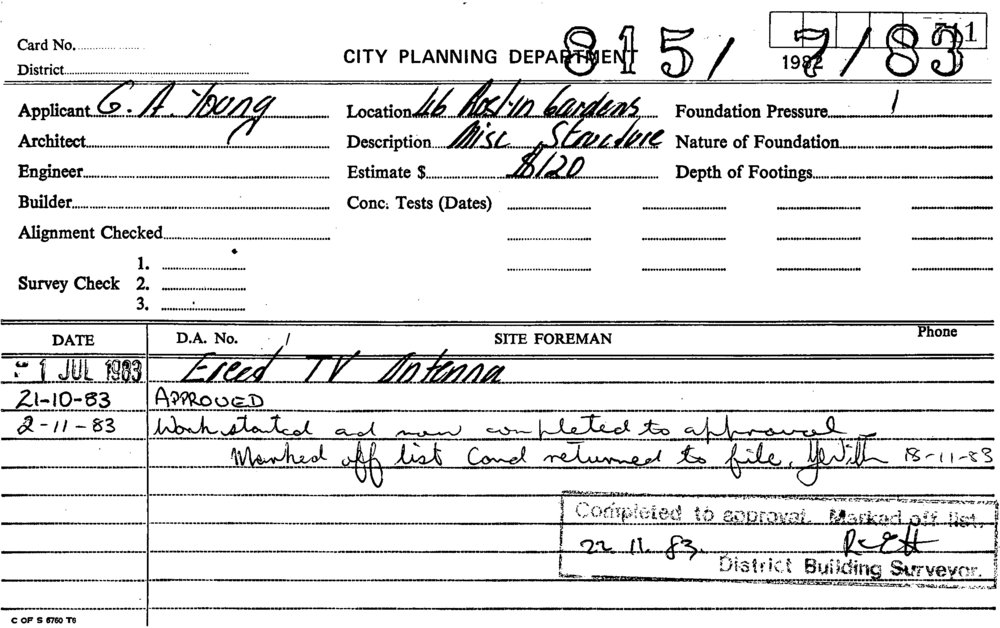 Card No.
CITY PLANNING DEPARTMENT
815/
7/83
District
1982
Applicant G. A. Young
Location 46 Roslyn Gardens
Foundation Pressure
Architect
Description Misc Structure
Nature of Foundation
Engineer
Estimate $ $120
Depth of Footings
Builder
Conc. Tests (Dates)
Alignment Checked
1.
Survey Check 2.
3.
DATE D.A. No. SITE FOREMAN Phone
1 JUL 1983 Erect TV Antenna
21-10-83 APPROVED
2-11-83 Work started ad now completed to approval
Marked off list Card returned to file, 18-11-83
Completed to approval. Marked off list.
22 11. 83.
District Building Surveyor.
C OF S 5760 T6